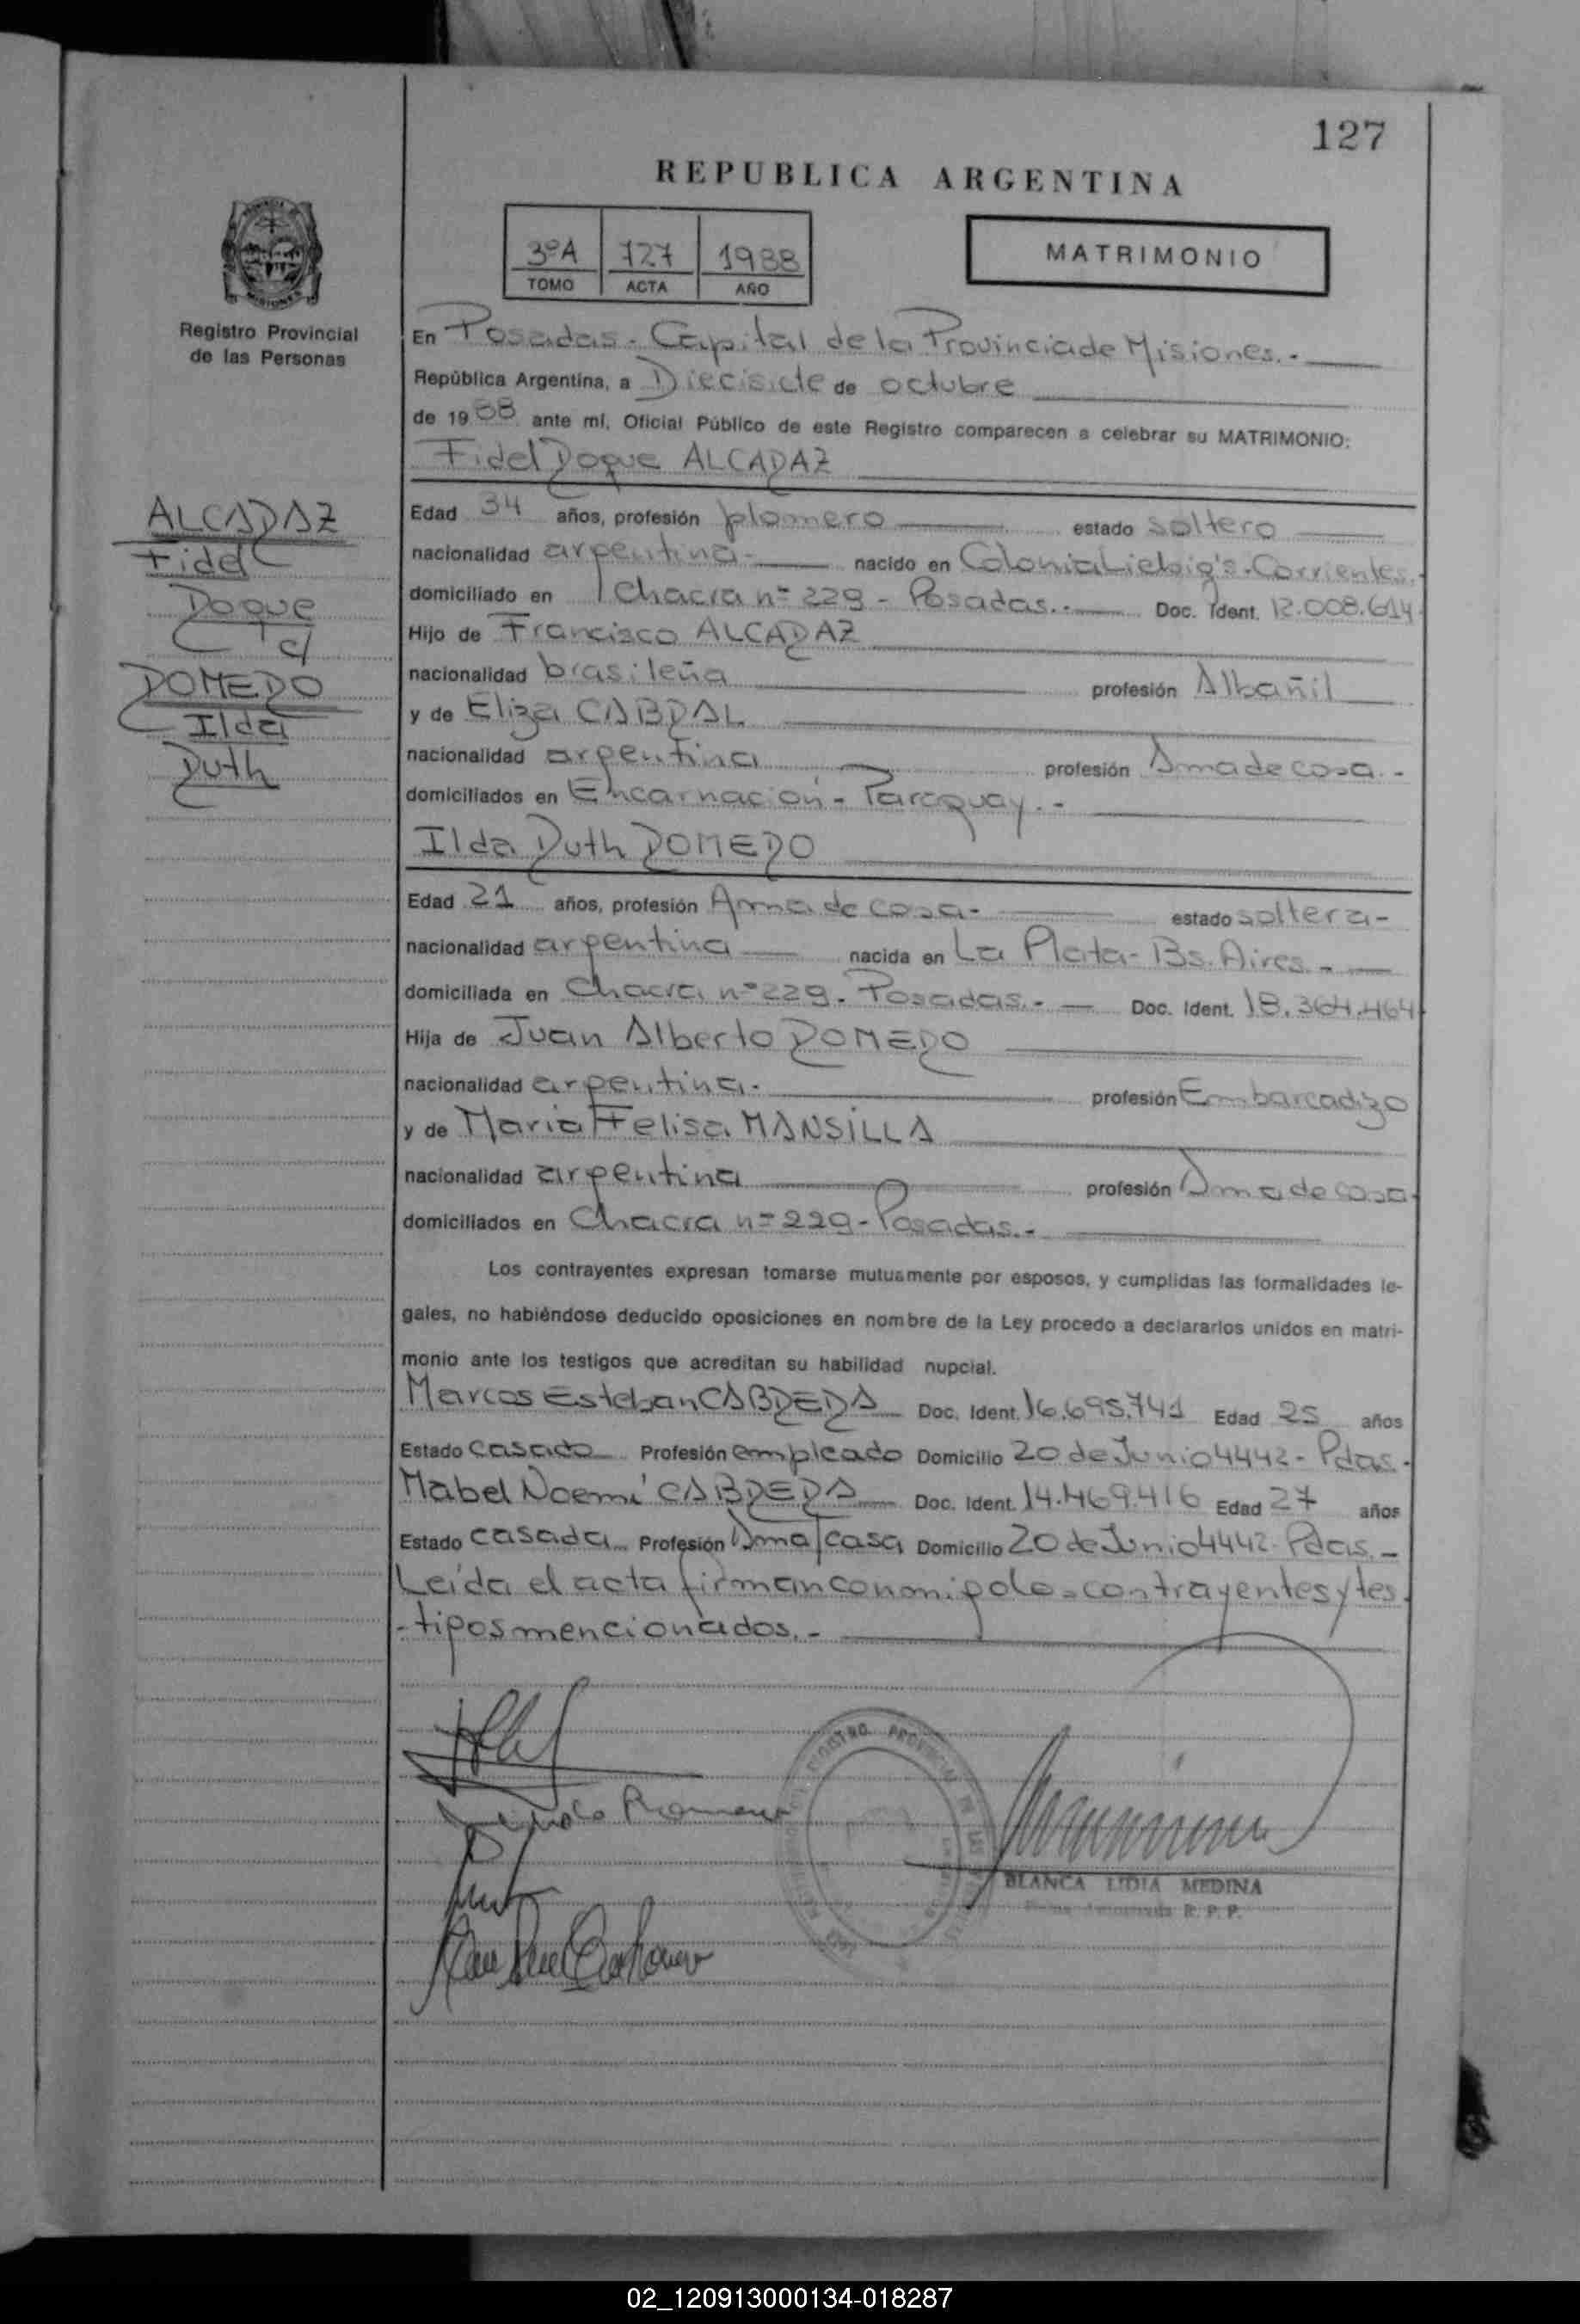 127
REPUBLICA ARGENTINA
3ºA 727 1988
TOMO ACTA AÑO
MATRIMONIO
Registro Provincial
de las Personas
En Posadas - Capital de la Provincia de Misiones.-
República Argentina, a Diecisiete de octubre
de 1988 ante mí, Oficial Público de este Registro comparecen a celebrar su MATRIMONIO:
Fidel Roque ALCARAZ
ALCARAZ
Fidel
Roque
c/
ROMERO
Ilda
Ruth
Edad 34 años, profesión plomero estado soltero
nacionalidad argentina- nacido en Colonia Liebig's-Corrientes.-
domiciliado en Chacra nº 229 - Posadas.- Doc. Ident. 12.008.614
Hijo de Francisco ALCARAZ
nacionalidad brasileña profesión Albañil
y de Eliza CABRAL
nacionalidad argentina profesión Ama de casa.-
domiciliados en Encarnación - Paraguay.-
Ilda Ruth ROMERO
Edad 21 años, profesión Ama de casa- estado soltera-
nacionalidad argentina nacida en La Plata- Bs. Aires.-
domiciliada en Chacra nº 229. Posadas.- Doc. Ident. 18.364.464
Hija de Juan Alberto ROMERO
nacionalidad argentina. profesión Embarcadizo
y de Maria Felisa MANSILLA
nacionalidad argentina profesión Ama de casa-
domiciliados en Chacra nº 229 - Posadas.-
Los contrayentes expresan tomarse mutuamente por esposos, y cumplidas las formalidades le-
gales, no habiéndose deducido oposiciones en nombre de la Ley procedo a declararlos unidos en matri-
monio ante los testigos que acreditan su habilidad nupcial.
Marcos Esteban CABRERA Doc. Ident. 16.695.741 Edad 25 años
Estado casado Profesión empleado Domicilio 20 de Junio 4442- Pdas.
Mabel Noemí CABRERA Doc. Ident. 14.469.416 Edad 27 años
Estado casada Profesión Ama/casa Domicilio 20 de Junio 4442- Pdas.-
Leída el acta firman conmigo los contrayentes y tes
-tigos mencionados.-
BLANCA LIDIA MEDINA
R. P. P.
02_120913000134-018287